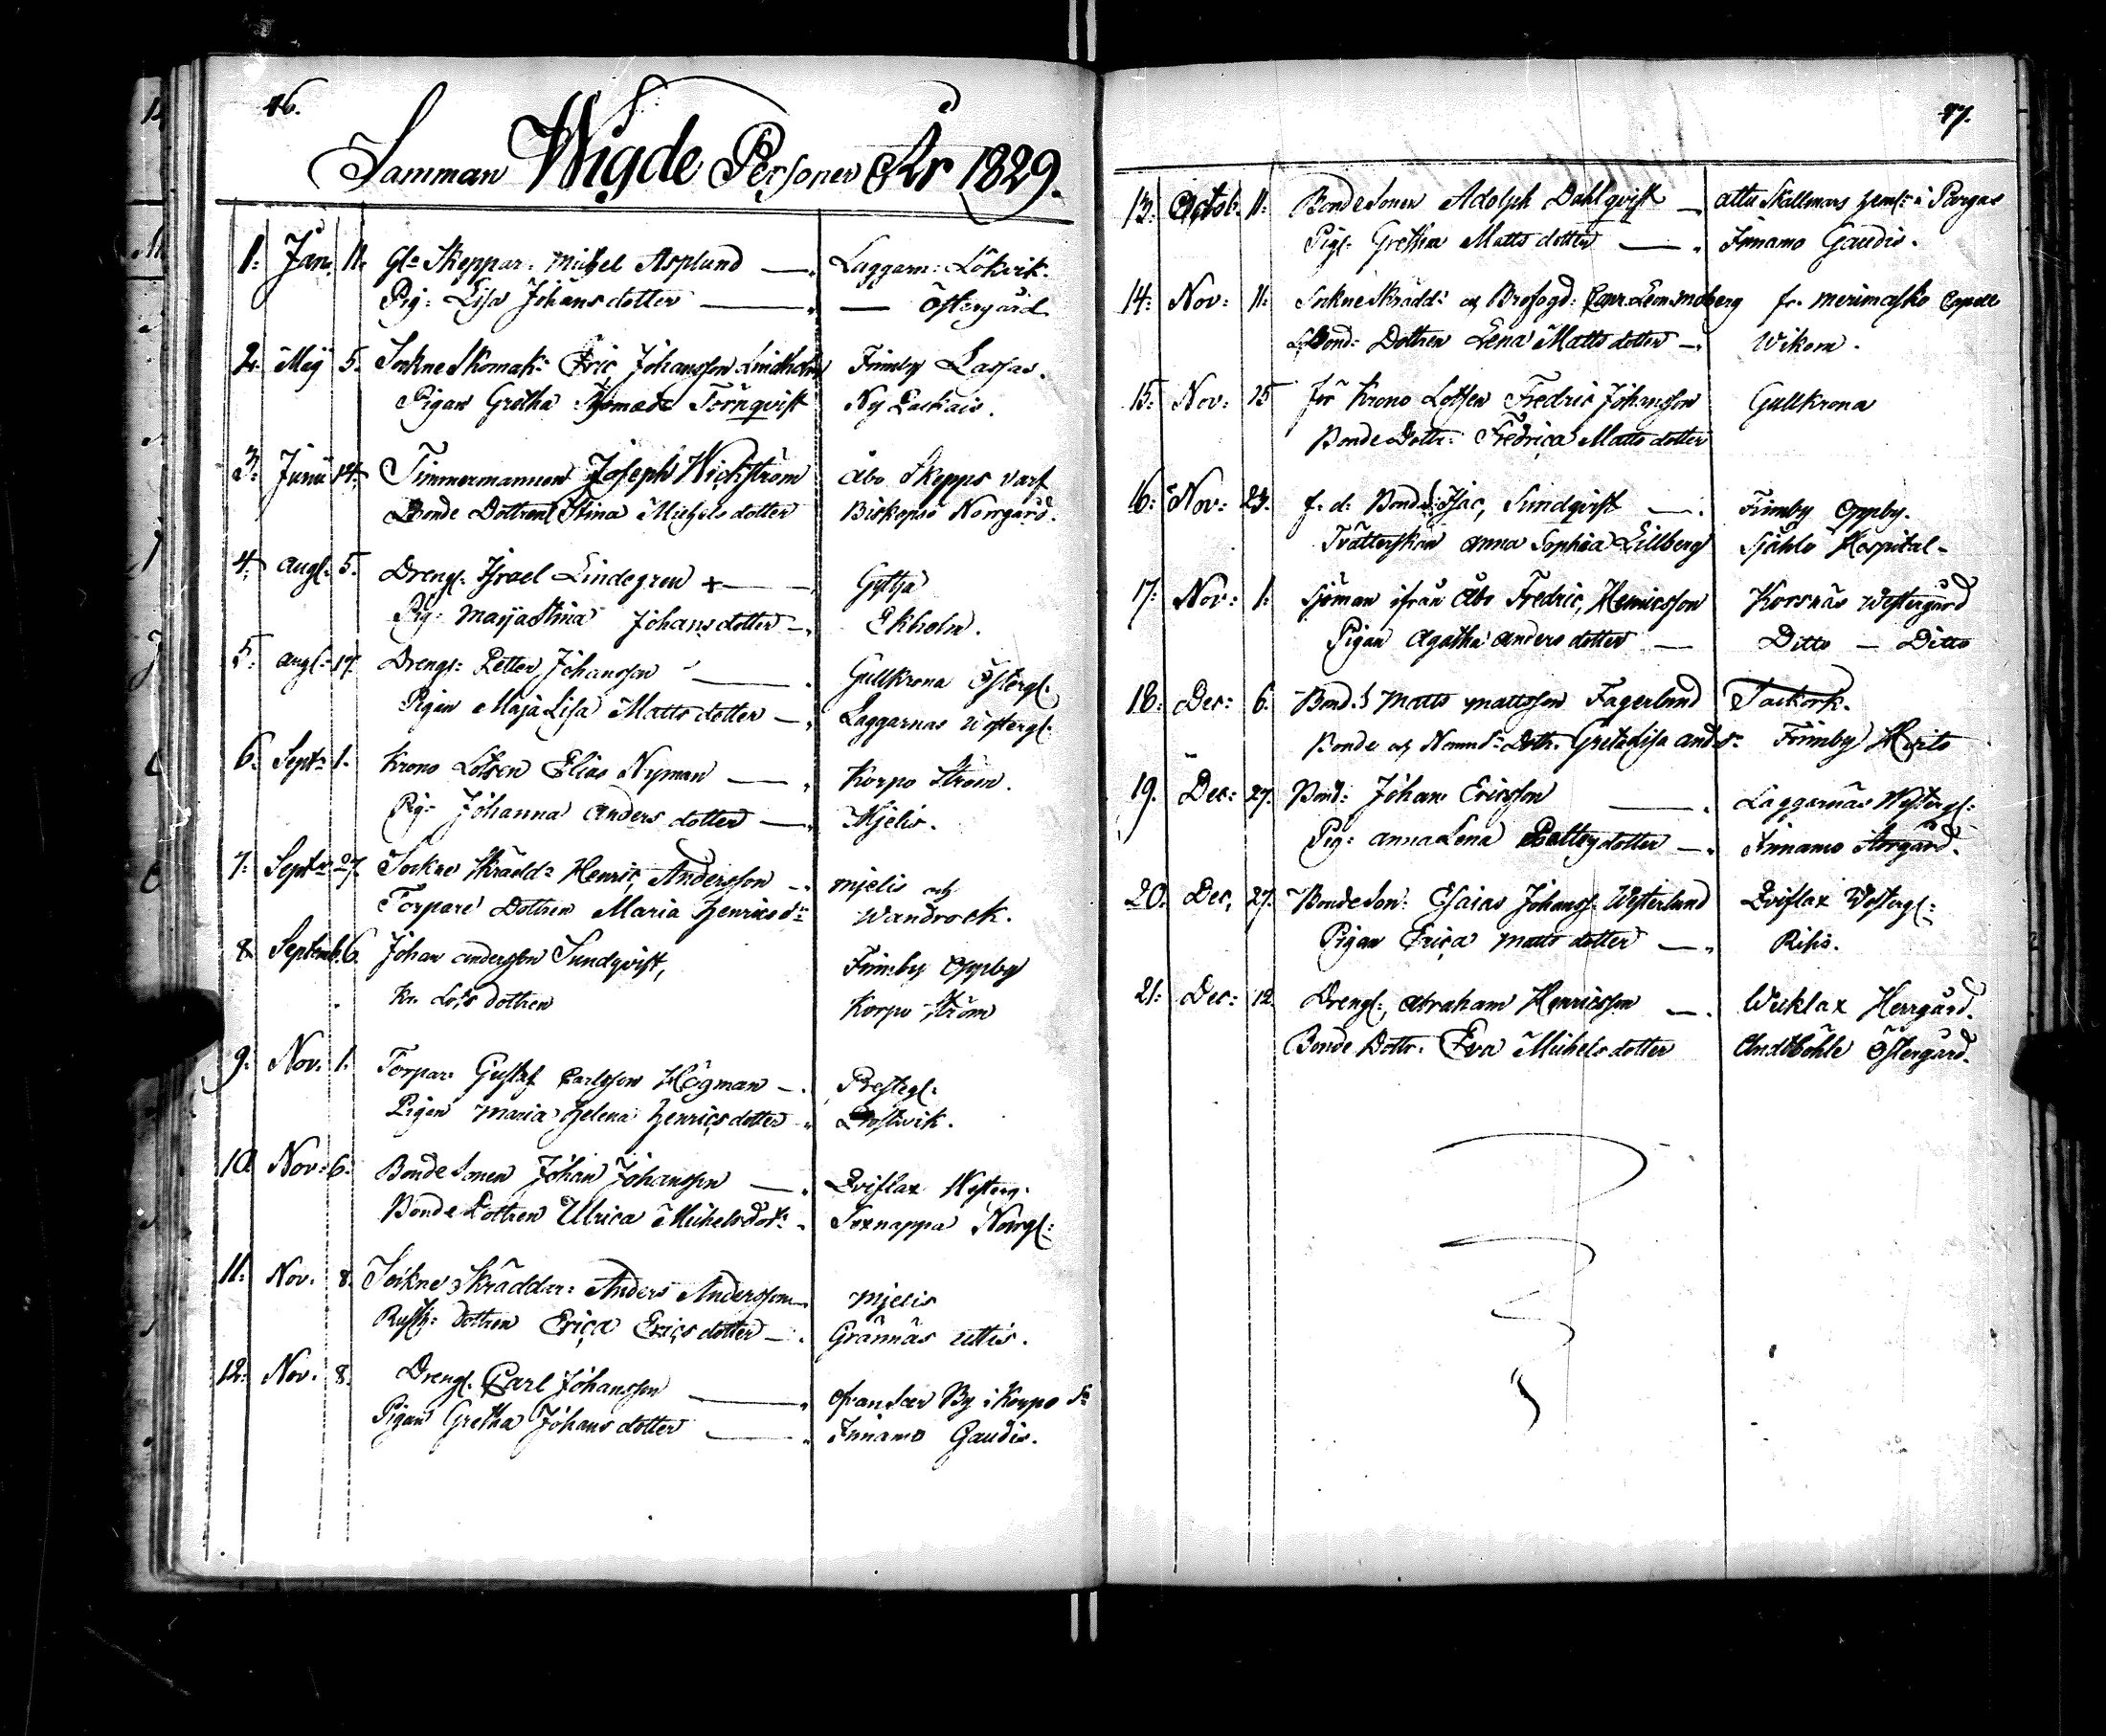 46.
Samman Wigde Personer År 1829.
1: Jan: 11. Gle Skeppar: Michel Asplund —„ Laggarn: Lökvik.
Pig: Lisa Johans dotter —„ — Östergård
2. Maij 5. Sockne Skomak: Eric Johansson Lindholm Finnby Lassas.
Pigan Gretha Törnqvist Ny
3. Junii 14. Timmermannen Joseph Wickström Åbo Skepps varf
Bonde Dottren Stina Michels dotter Biskopsö Norrgård.
4. Aug: 5. Dreng: Israel Lindegren + — Gyttja
Pig: Maija Stina Johans dotter —„ Ekholm.
5. Aug: 17. Dreng: Petter Johansson —„ Gullkrona Österg:
Pigan Maja Lisa Matts dotter —„ Laggarnas Westerg:
6. Sept: 1. Krono Lotsen Elias Nyman —„ Korpo Ström.
Pig: Johanna Anders dotter —„ Mjelis.
7. Sept: 27. Sockne Skrädd: Henric Andersson —„ Mjelis och
Torpare Dottren Maria Henrics dr Wandrock.
8. Septemb. 6. Johan Andersson Sundqvist, Finnby Oppby
Kr. Lots dottren Korpo Ström
9. Nov: 1. Torpar: Gustaf Carlsson Högman —. Presteg:
Pigan Maria Helena Henrics dotter „ Prostvik.
10. Nov: 6. Bonde Sonen Johan Johansson —„ Dviflax Westerg:
Bonde Dottren Ulrica Michels dotr Sexnappa Norrg:
11: Nov. 8. Sockne Skräddar: Anders Andersson —„ Mjelis
Rusth: Dottren Erica Erics dotter —. Grännäs Uttis.
12: Nov. 8. Dreng: Carl Johansson —„ By i Korpo Sn
Pigan Gretha Johans dotter —„ Finnamo Gaudis.
47.
13: Octob. 11. Bonde Sonen Adolph Dahlqvist — Attu Skallmars hem: i Pargas
Pig: Gretha Matts dotter —„ Finnamo Gaudis.
14: Nov: 11. Sockne Skrädd: och Brofogd: fr. Merimasko Capell
Bond: Dottren Lena Matts dotter —. Wikom.
15: Nov: 15 för Krono Lotsen Fredric Johansson Gullkrona
Bonde Dottr: Fredrica Matts dotter
16: Nov: 23. f. d. Bond: Isac, Sundqvist —. Finnby Oppby.
Tvätterskan Anna Sophia Lillberg Själö Hospital —
17: Nov: 1. Sjöman ifrån Åbo Fredric, Henricsson Korsnäs Westergård
Pigan Agatha Anders dotter — Ditto — Ditto
18: Dec: 6. Bond: Matts Mattsson Fagerlund Tackork.
Bonde och Nämnd: Dottr: Greta Lisa And: dr Finnby Mixits
19. Dec: 27. Bond: Johan Ericsson —. Laggarnäs Westerg:
Pig: Anna Lena dotter —„ Finnamo Storgård.
20. Dec, 27. Bonde Son: Esaias Johanss: Westerlund Dviflax Westerg:
Pigan Erica Matts dotter —„ Rihis.
21: Dec: 12. Dreng:, Abraham Henricsson —. Wicklax Herrgård.
Bonde Dottr: Eva Michels dotter Andtböhle Östergård.